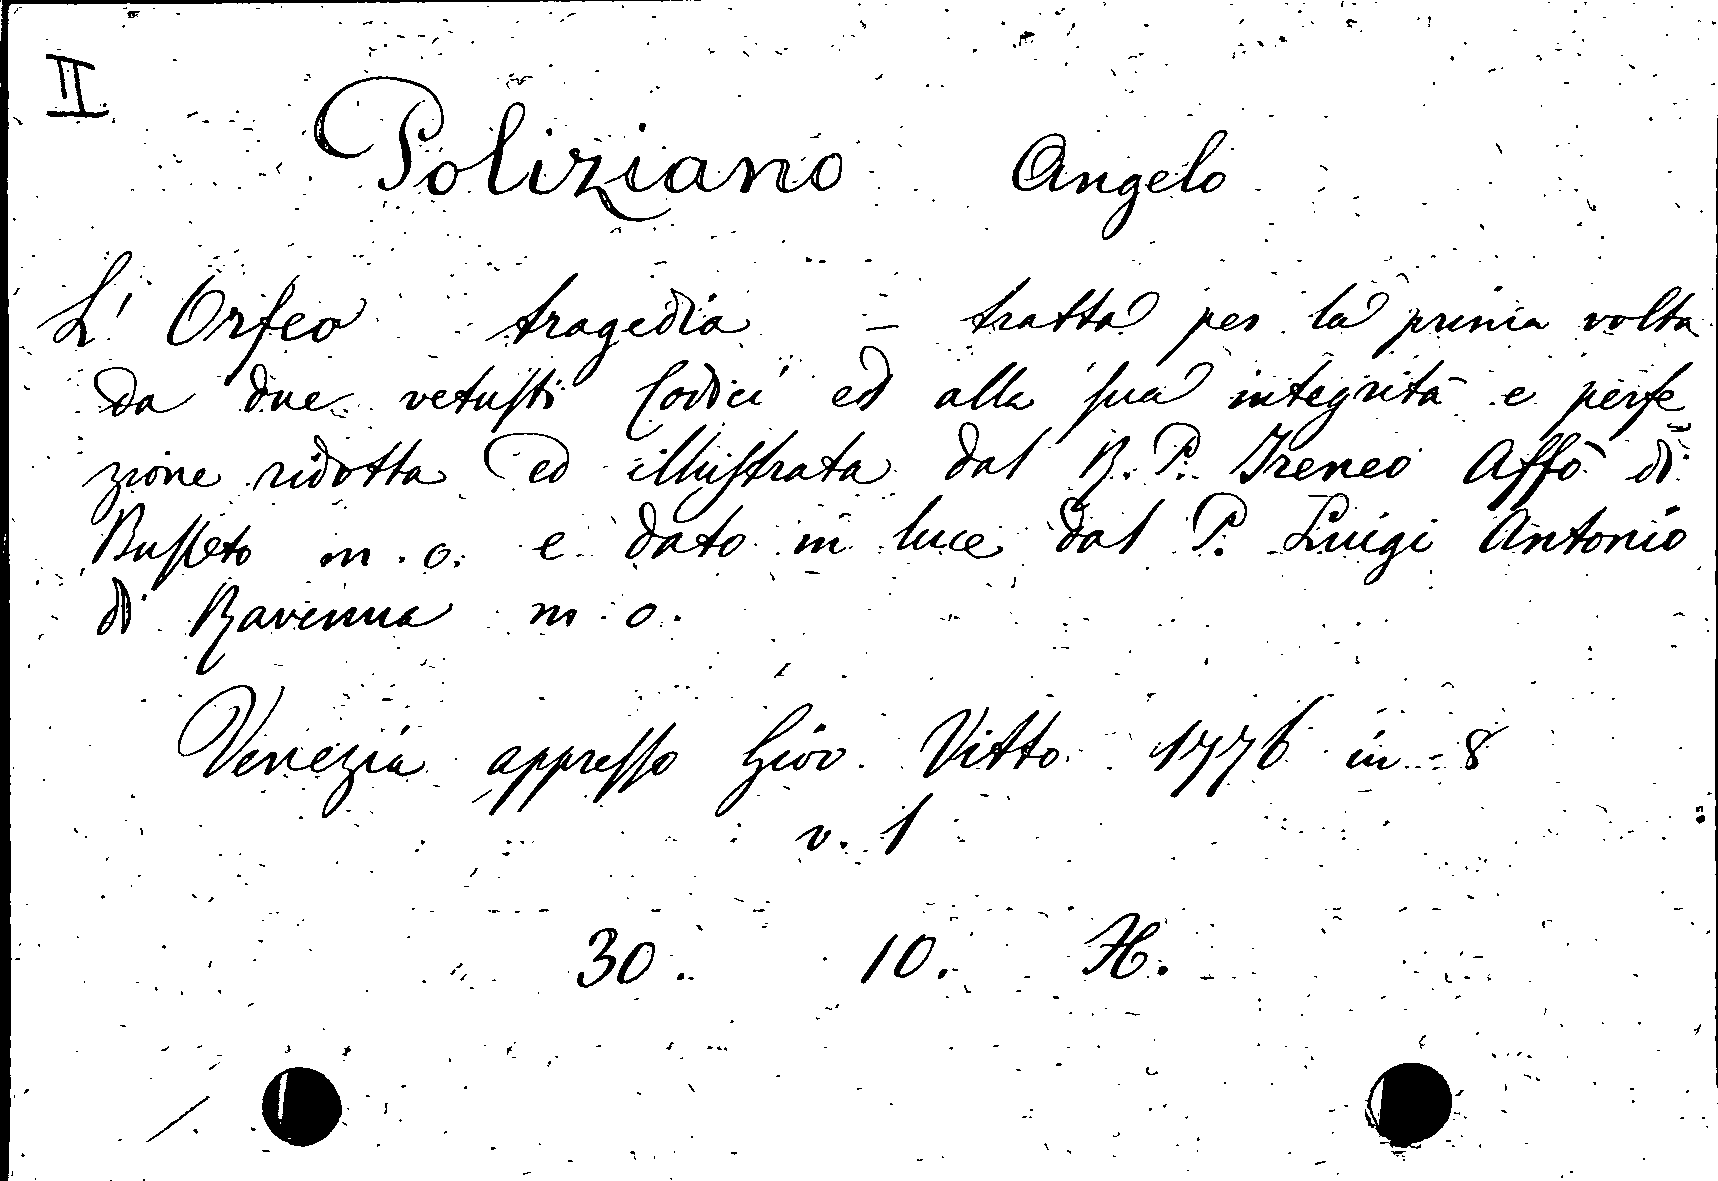 II
Poliziano Angelo
L' Orfeo tragedia - tratta per la prima volta
da due vetusti Codici ed alla sua integrità e perfe
zione ridotta ed illustrata dal R. P. Ireneo Affò di
Busseto m. o. e dato in luce dal P. Luigi Antonio
di Ravenna m. o.
Venezia appresso Giov. Vitto 1776 in-8
v. 1
30. 10. H.